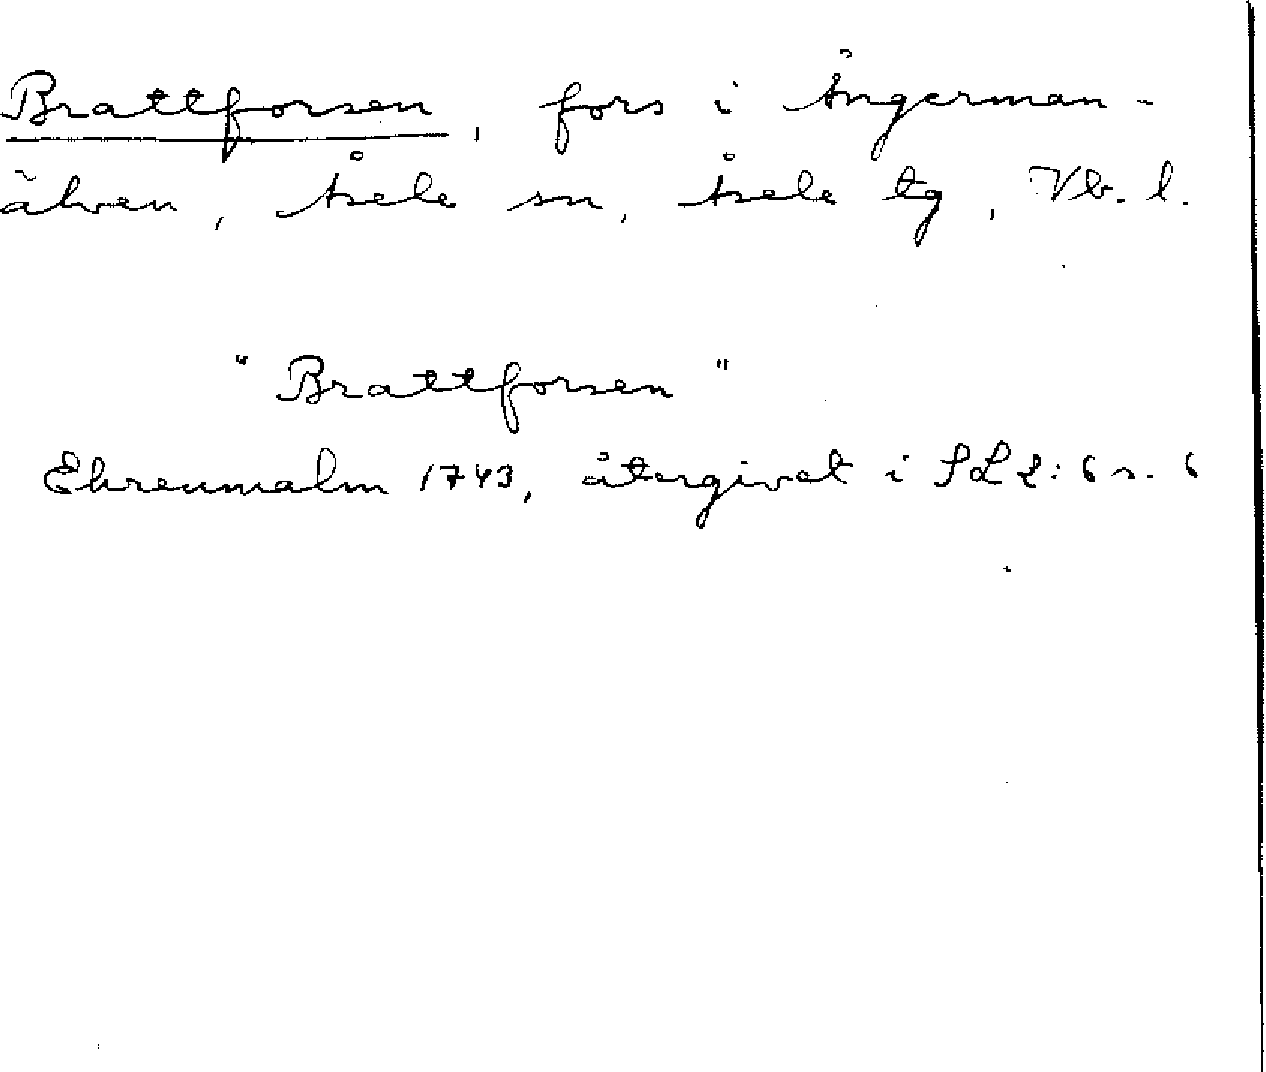 Brattforsen, fors i Ångerman-
älven, Åsele sn, Åsele tg, Vb. l.
"Brattforsen"
Ehrenmalm 1743, återgivet i SL 2:6 s. 6